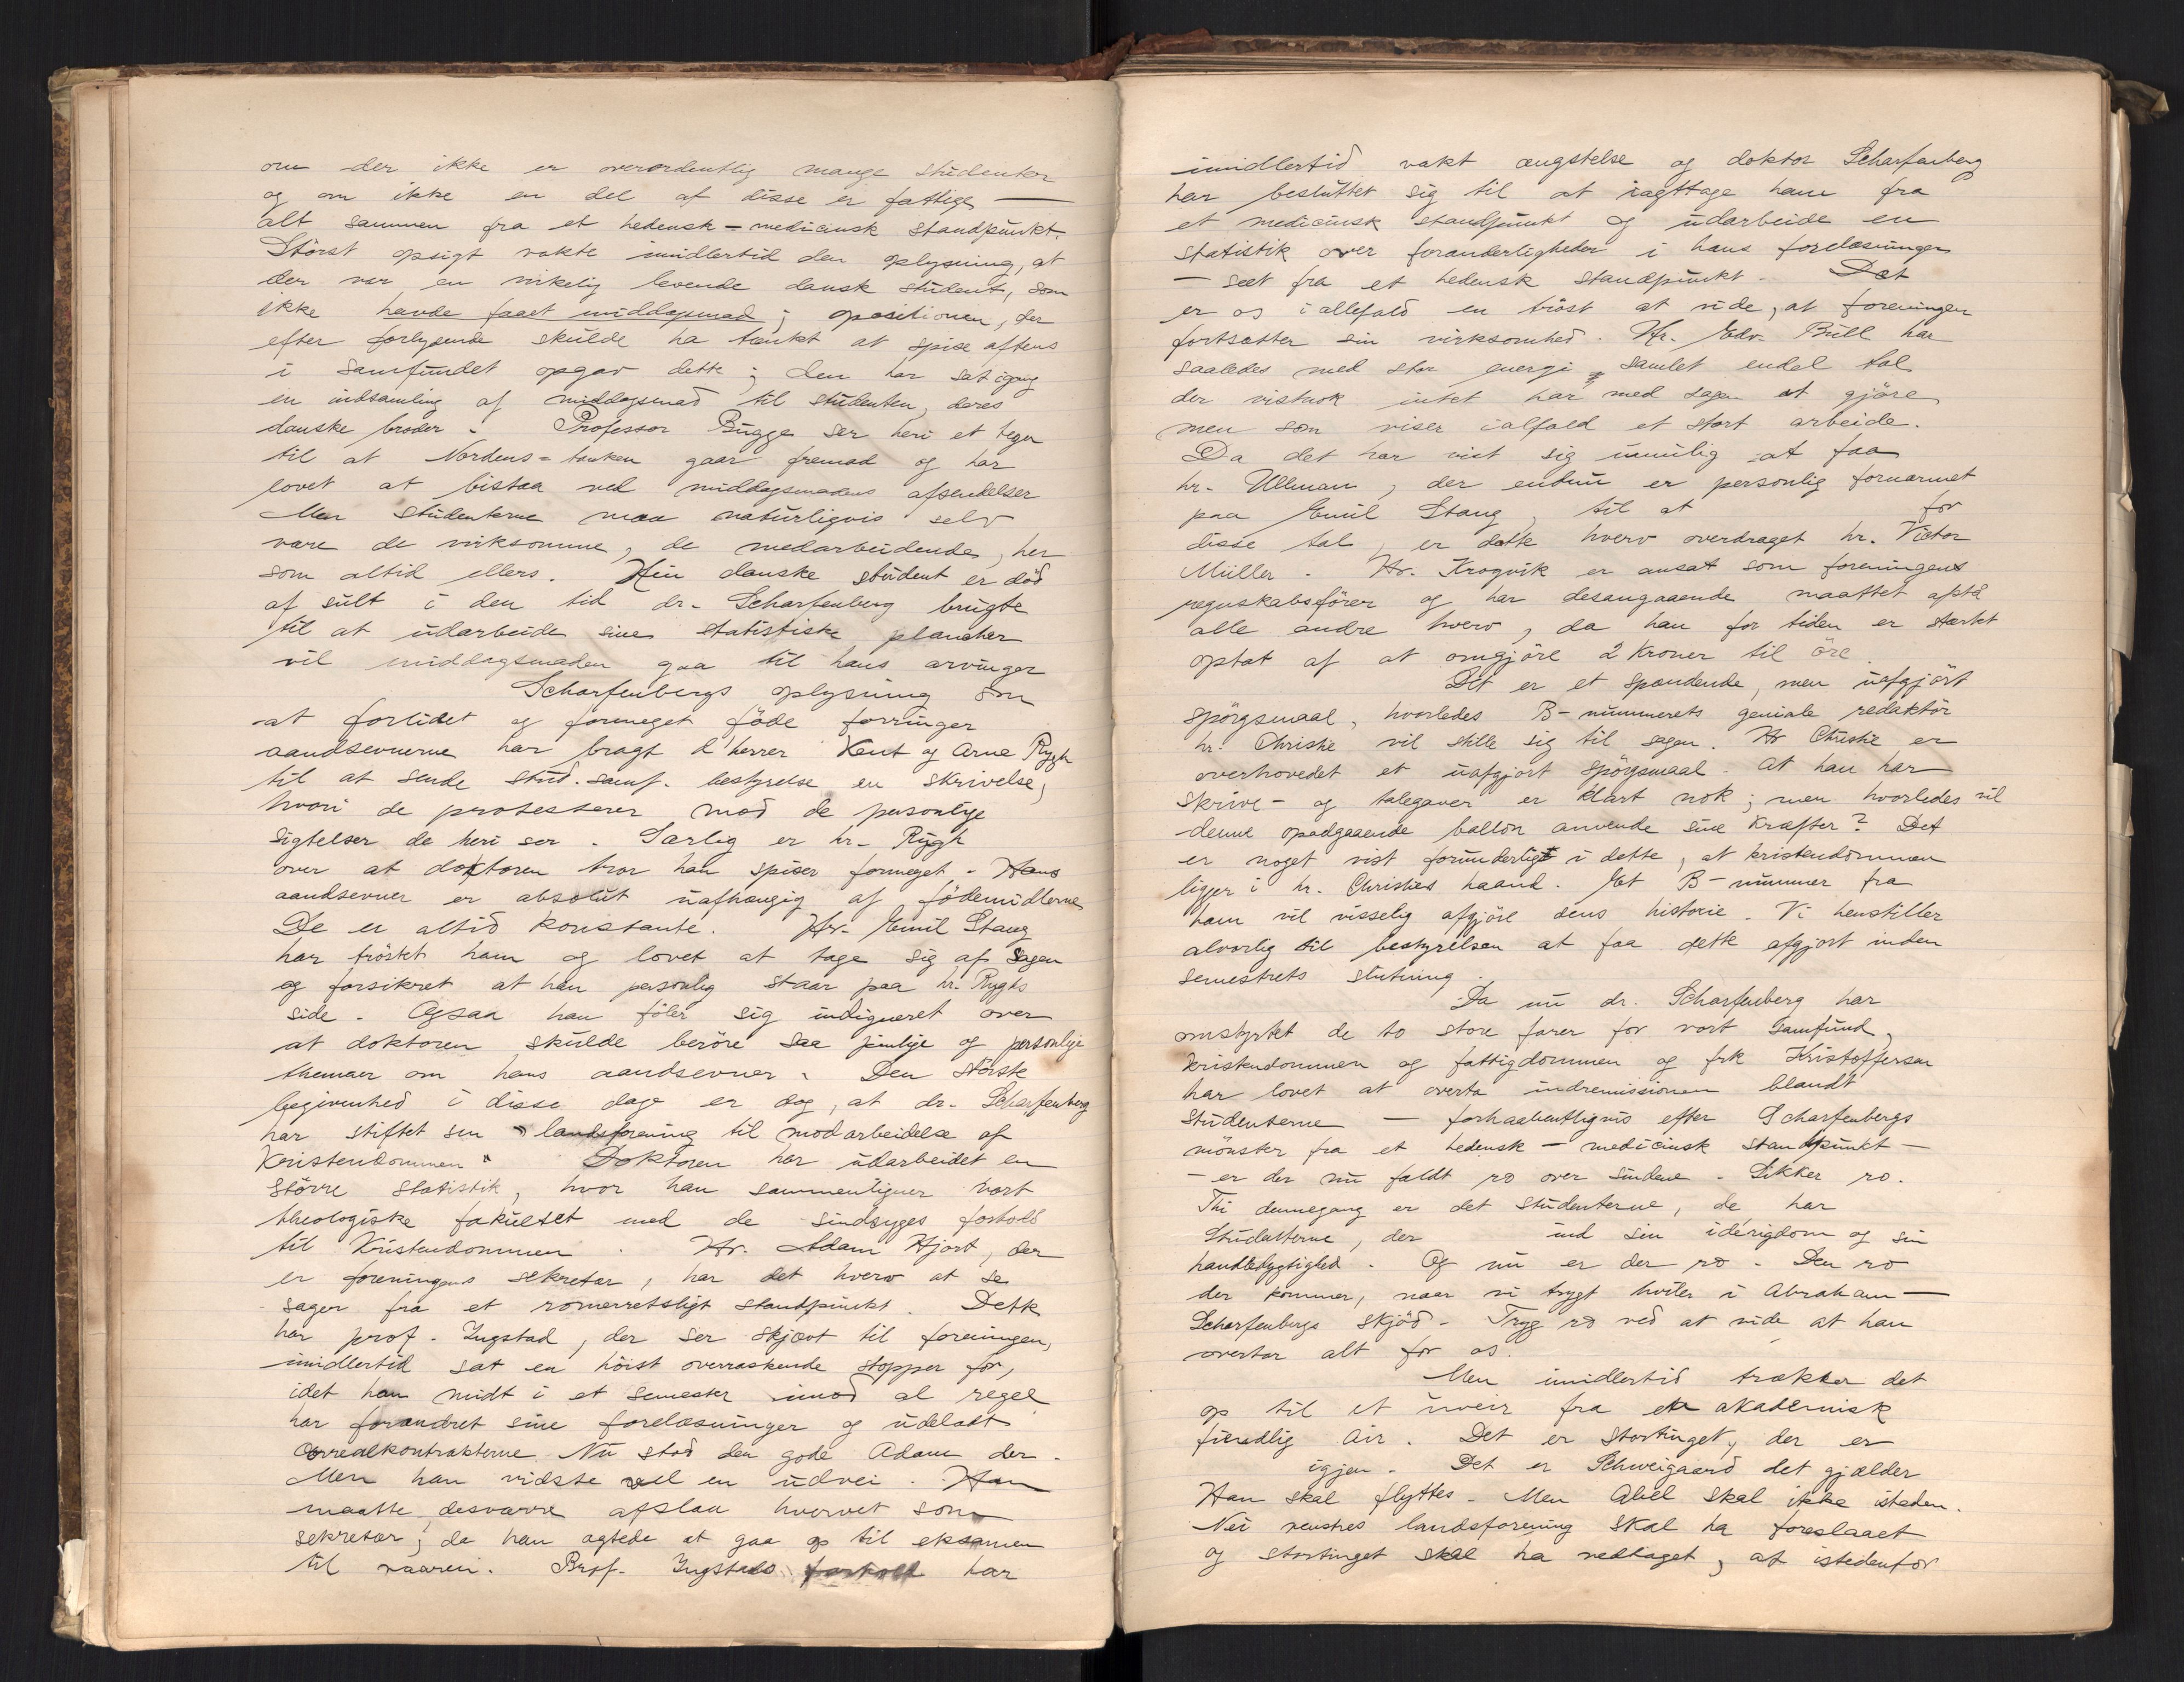 om der ikke er overordentlig mange studenter
og om ikke en del af disse er fattige —
alt sammen fra et hedensk-medicinsk standpunkt.
Störst opsigt vakte imidlertid den oplysning, at
der var en virkelig levende dansk student, som
ikke havde faaet middagsmad; opositionen, der
efter forlydende skulde ha tænkt at spise aftens
i Samfundet opgav dette; den har sat igang
en indsamling af middagsmad til studenten, deres
danske broder. Professor Bugge ser heri et tegn
til at Nordens-tanken gaar fremad og har
lovet at bistaa ved middagsmadens afsendelse
Men studenterne maa naturligvis selv
være de virksomme, de medarbeidende, her
som altid ellers. Hin danske student er död
af sult i den tid dr. Scharfenberg brugte
til at udarbeide sine statistiske plancher
vil middagsmaden gaa til hans arvinger
Scharfenbergs oplysning om
at forlidet og formeget föde forringer
aandsevnerne har bragt d'herrer Kent og Arne Rygh
til at sende stud. samf. bestyrelse en skrivelse,
hvori de protesterer mod de personlige
sigtelser de heri ser. Særlig er hr. Rygh
over at doktoren tror han spiser formeget. Hans
aandsevner er absolut uafhængig af födemidlerne
De er altid konstante. Hr. Emil Stang
har tröstet ham og lovet at tage sig af sagen
og forsikret at han personlig staar paa hr. Ryghs
side. Ogsaa han föler sig indigneret over
at doktoren skulde beröre saa pinlige og personlige
themaer om hans aandsevner. Den störste
begivenhed i disse dage er dog, at dr. Scharfenberg
har stiftet sin "landsforening til modarbeidelse af
Kristendommen" Doktoren har udarbeidet en
större statistik, hvor han sammenligner vort
theologiske fakultet med de sindsyges forhold
til Kristendommen. Hr. Adam Hjort, der
er foreningens sekretær, har det hverv at se
sagen fra et romerretsligt standpunkt. Dette
har prof. Ingstad, der ser skjævt til foreningen,
imidlertid sat en höist overraskende stopper for,
idet han midt i et semester imod al regel
har forandret sine forelæsninger og udeladt
realkontrakterne. Nu stod den gode Adam der.
Men han vidste vel en udvei. Han
maatte desværre afslaa hvervet som
sekretær; da han agtede at gaa op til eksamen
til vaaren. Prof. Ingstads forhold har
imidlertid vakt ængstelse og doktor Scharfenberg
har besluttet sig til at iagttage ham fra
et medicinsk standpunkt og udarbeide en
statistik over foranderligheder i hans forelæsninger
— seet fra et hedensk standpunkt. Det
er os i allefald en tröst at vide, at foreningen
fortsætter sin virksomhed. Hr. Edv. Bull har
saaledes med stor energi samlet endel tal
der vistnok intet har med sagen at gjöre
men som viser ialfald et stort arbeide.
Da det har vist sig umulig at faa
hr. Ullman, der endnu er personlig fornærmet
paa Emil Stang, til at for
disse tal, er dette hverv overdraget hr. Victor
Müller. Hr. Krogvik er ansat som foreningens
regnskabsförer og har desangaaende maattet afstå
alle andre hverv, da han for tiden er stærkt
optat af at omgjöre 2 Kroner til öre.
Det er et spændende, men uafgjört
spörgsmaal, hvorledes B-nummerets geniale redaktör
hr. Christie vil stille sig til sagen. Hr Christie er
overhovedet et uafgjort spörgsmaal. At han har
skrive- og talegaver er klart nok; men hvorledes vil
denne opadgaaende ballon anvende sine kræfter? Det
er noget vist forunderligt i dette, at kristendommen
ligger i hr. Christies haand. Et B-nummer fra
ham vil visselig afgjöre dens historie. Vi henstiller
alvorlig til bestyrelsen at faa dette afgjort inden
semestrets slutning.
Da nu dr. Scharfenberg har
omstyrtet de to store farer for vort samfund,
kristendommen og fattigdommen og frk Kristoffersen
har lovet at overta indremissionen blandt
studenterne — forhaabentligvis efter Scharfenbergs
mönster fra et hedensk-medicinsk standpunkt —
— er der nu faldt ro over sindene. Sikker ro.
Thi dennegang er det studenterne, de har
Studenterne, der ind sin idérigdom og sin
handledygtighed. Og nu er der ro. Den ro
der kommer, naar vi trygt hviler i Abraham —
Scharfenbergs skjöd. Tryg ro ved at vide at han
overtar alt for os.
Men imidlertid trækker det
op til et uveir fra en akademisk
fiendlig air. Det er Stortinget, der er
igjen. Det er Schweigaard det gjælder
Han skal flyttes. Men Abel skal ikke isteden.
Nei venstres landsforening skal ha foreslaaet
og stortinget skal ha vedtaget, at istedenfor